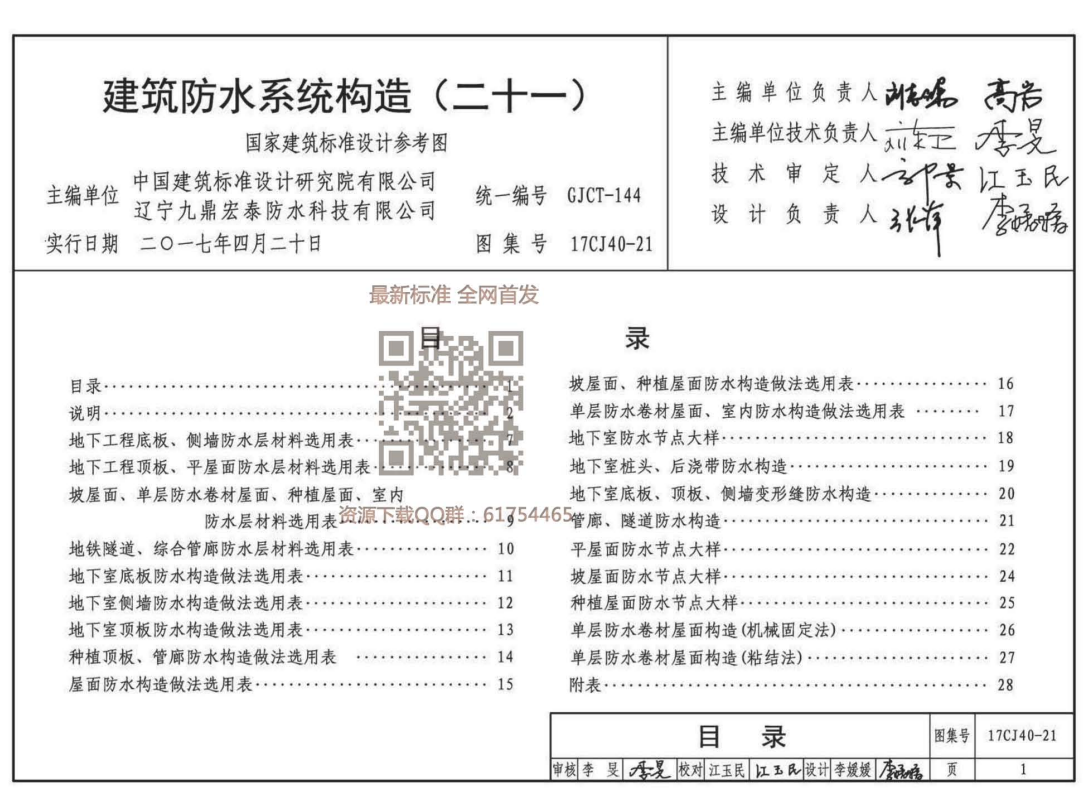 建筑防水系统构造（二十一）
国家建筑标准设计参考图
主编单位 中国建筑标准设计研究院有限公司
辽宁九鼎宏泰防水科技有限公司
统一编号 GJCT-144
实行日期 二〇一七年四月二十日
图集号 17CJ40-21
主编单位负责人 高岩
主编单位技术负责人 李旻
技术审定人 江玉民
设计负责人 李媛媛
最新标准 全网首发
目 录
目录 1
说明 2
地下工程底板、侧墙防水层材料选用表 7
地下工程顶板、平屋面防水层材料选用表 8
坡屋面、单层防水卷材屋面、种植屋面、室内
防水层材料选用表 9
资源下载QQ群：61754465
地铁隧道、综合管廊防水层材料选用表 10
地下室底板防水构造做法选用表 11
地下室侧墙防水构造做法选用表 12
地下室顶板防水构造做法选用表 13
种植顶板、管廊防水构造做法选用表 14
屋面防水构造做法选用表 15
坡屋面、种植屋面防水构造做法选用表 16
单层防水卷材屋面、室内防水构造做法选用表 17
地下室防水节点大样 18
地下室桩头、后浇带防水构造 19
地下室底板、顶板、侧墙变形缝防水构造 20
管廊、隧道防水构造 21
平屋面防水节点大样 22
坡屋面防水节点大样 24
种植屋面防水节点大样 25
单层防水卷材屋面构造(机械固定法) 26
单层防水卷材屋面构造(粘结法) 27
附表 28
目 录
图集号 17CJ40-21
审核 李旻 李旻 校对 江玉民 江玉民 设计 李媛媛 李媛媛 页 1